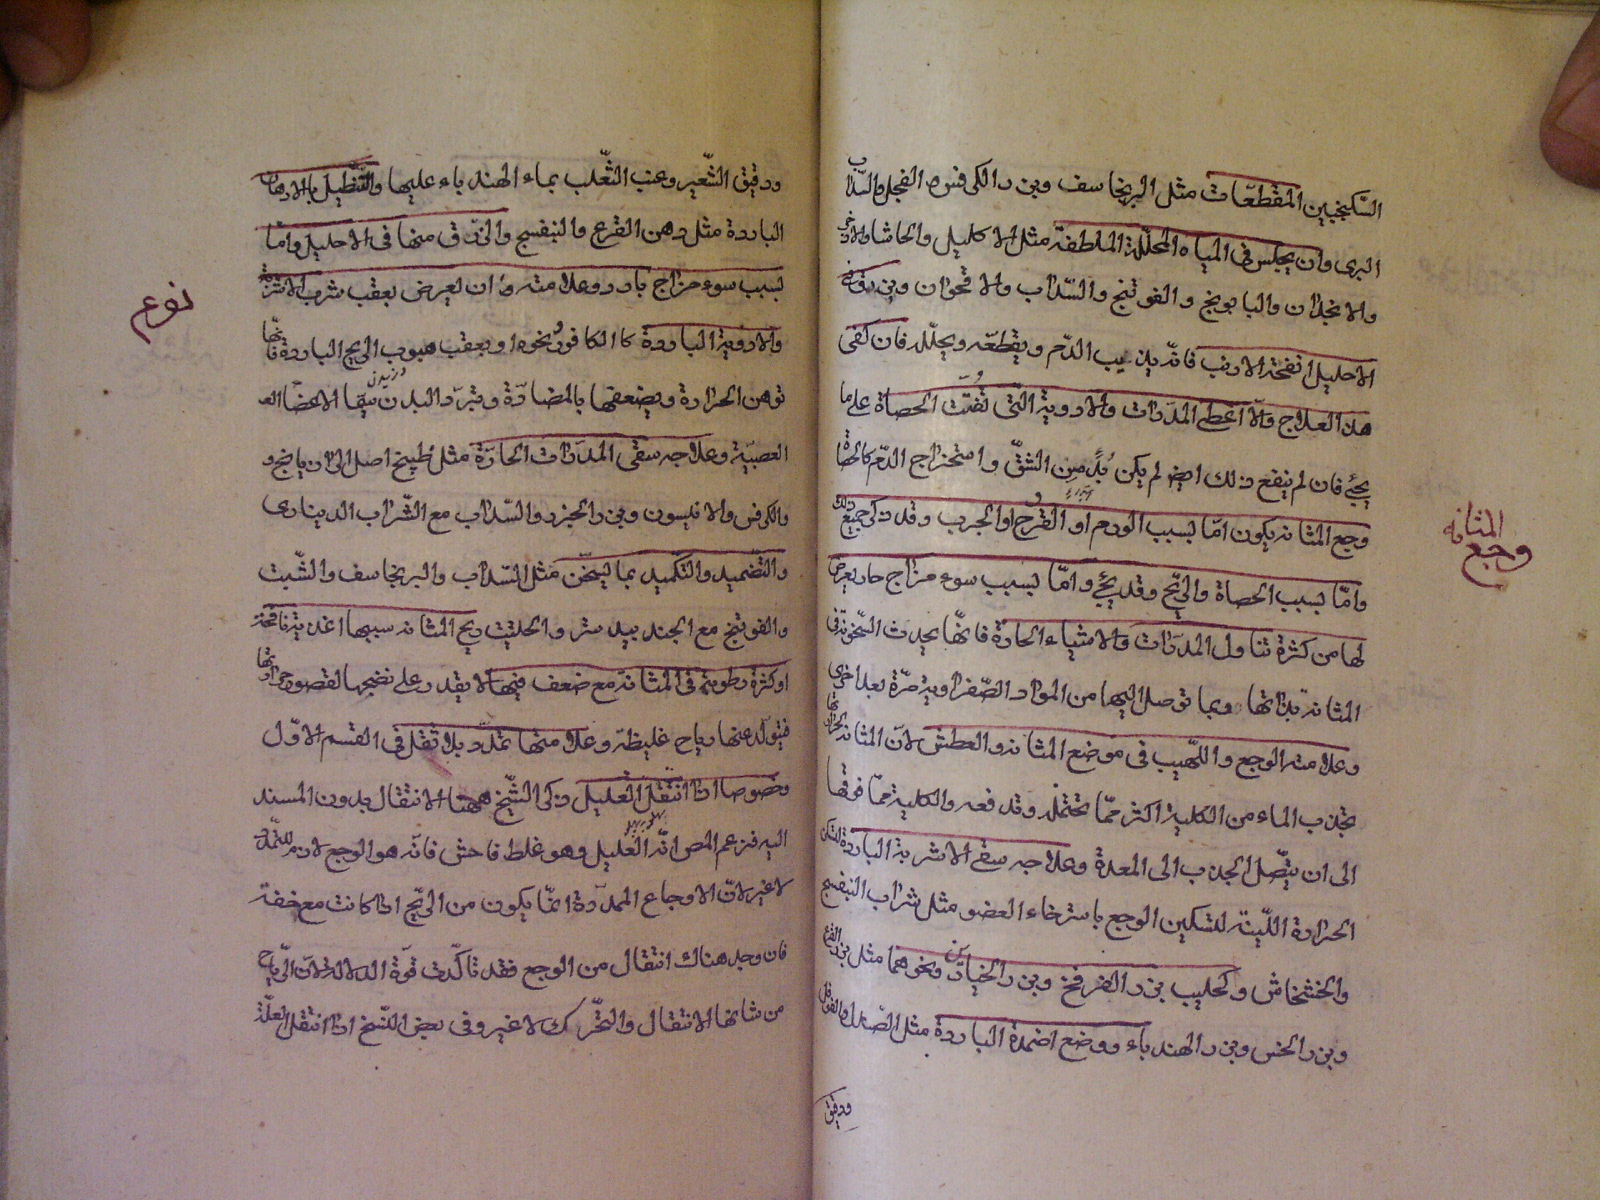 السكنجبين المقطعات مثل البرنجاسف وبزر الكرفس والفجل والسذاب
البرى وان يجلس فى المياه المحللة الملطفة مثل الاكليل والحاشا والاذخر
والانجدان والبابونج والفوتنج والسذاب والاقحوان ويزرق فى
الاحليل انفحة الارنب فانه يذيب الدم ويقطعه ويحلله فان كفى
هذا العلاج والا اعطى المدرات والادوية التى تفتت الحصاة على ما
يجئ فان لم ينفع ذلك ايضا لم يكن بد من الشق واستخراج الدم كالحصاة
وجع المثانة يكون اما بسبب الورم او القرح او الجرب وقد ذكر جميع ذلك
واما بسبب الحصاة والريح وقد يجئ واما بسبب سوء مزاج حار يعرض
لها من كثرة تناول المدرات والاشياء الحارة فانها يحدث السخونة فى
المثانة بذاتها وبما توصل اليها من المواد الصفراوية مرة بعد اخرى
وعلامته الوجع واللهيب فى موضع المثانة والعطش لان المثانة لحرارتها
تجذب الماء من الكلية اكثر مما تحتمله وتدفعه والكلية مما فوقها
الى ان يتصل الجذب الى المعدة وعلاجه سقى الاشربة الباردة لتسكن
الحرارة اللينة لتسكين الوجع باسترخاء العضو مثل شراب البنفسج
والخشخاش وكحليب بزر الفرفخ وبزر الخيارين ونحوهما مثل بزر القرع
وبزر الخس وبزر الهندباء ووضع اضمدة الباردة مثل الصندل والفوفل
ودقيق
المثانة
وجع
ودقيق الشعير وعنب الثعلب بماء الهندباء عليها والتنطيل بالادهان
الباردة مثل دهن القرع والبنفسج والزرق منها فى الاحليل واما
بسبب سوء مزاج بارد وعلامته ان يعرض بعقب شرب الاشربة
والادوية الباردة كالكافور ونحوه او بعقب هبوب الريح الباردة فانها
توهن الحرارة ويضعفها بالمضادة وتبرد البدن سيما الاعضاء
العصبية وعلاجه سقى المدرات الحارة مثل طبيخ اصل الرازيانج و
والكرفس والانيسون وبزر الجزر والسذاب مع الشراب الدينارى
والتضميد والتكميد بما يسخن مثل السذاب والبرنجاسف والشبت
والفوتنج مع الجندبيدستر والحلتيت ريح المثانة سببها اغذية نافخة
او كثرة رطوبة فى المثانة مع ضعف فيها لا يقدر على نضجها لقصور حرارتها
فيتولد عنها رياح غليظة وعلامتها تمدد بلا ثقل فى القسم الاول
وخصوصا اذا انتقل العليل ذكر الشيخ ههنا الانتقال بدون المسند
اليه فزعم المص انه العليل وهو غلط فاحش فانه هو الوجع لازم للتمدد
لا غير لان الاوجاع الممددة انما يكون من الريح اذا كانت مع خفة
فان وجد هناك انتقال من الوجع فقد تاكدت قوة الدلالة لان الرياح
من شانها الانتقال والتحرك لا غير وفى بعض النسخ اذا انتقل العلة
نوع